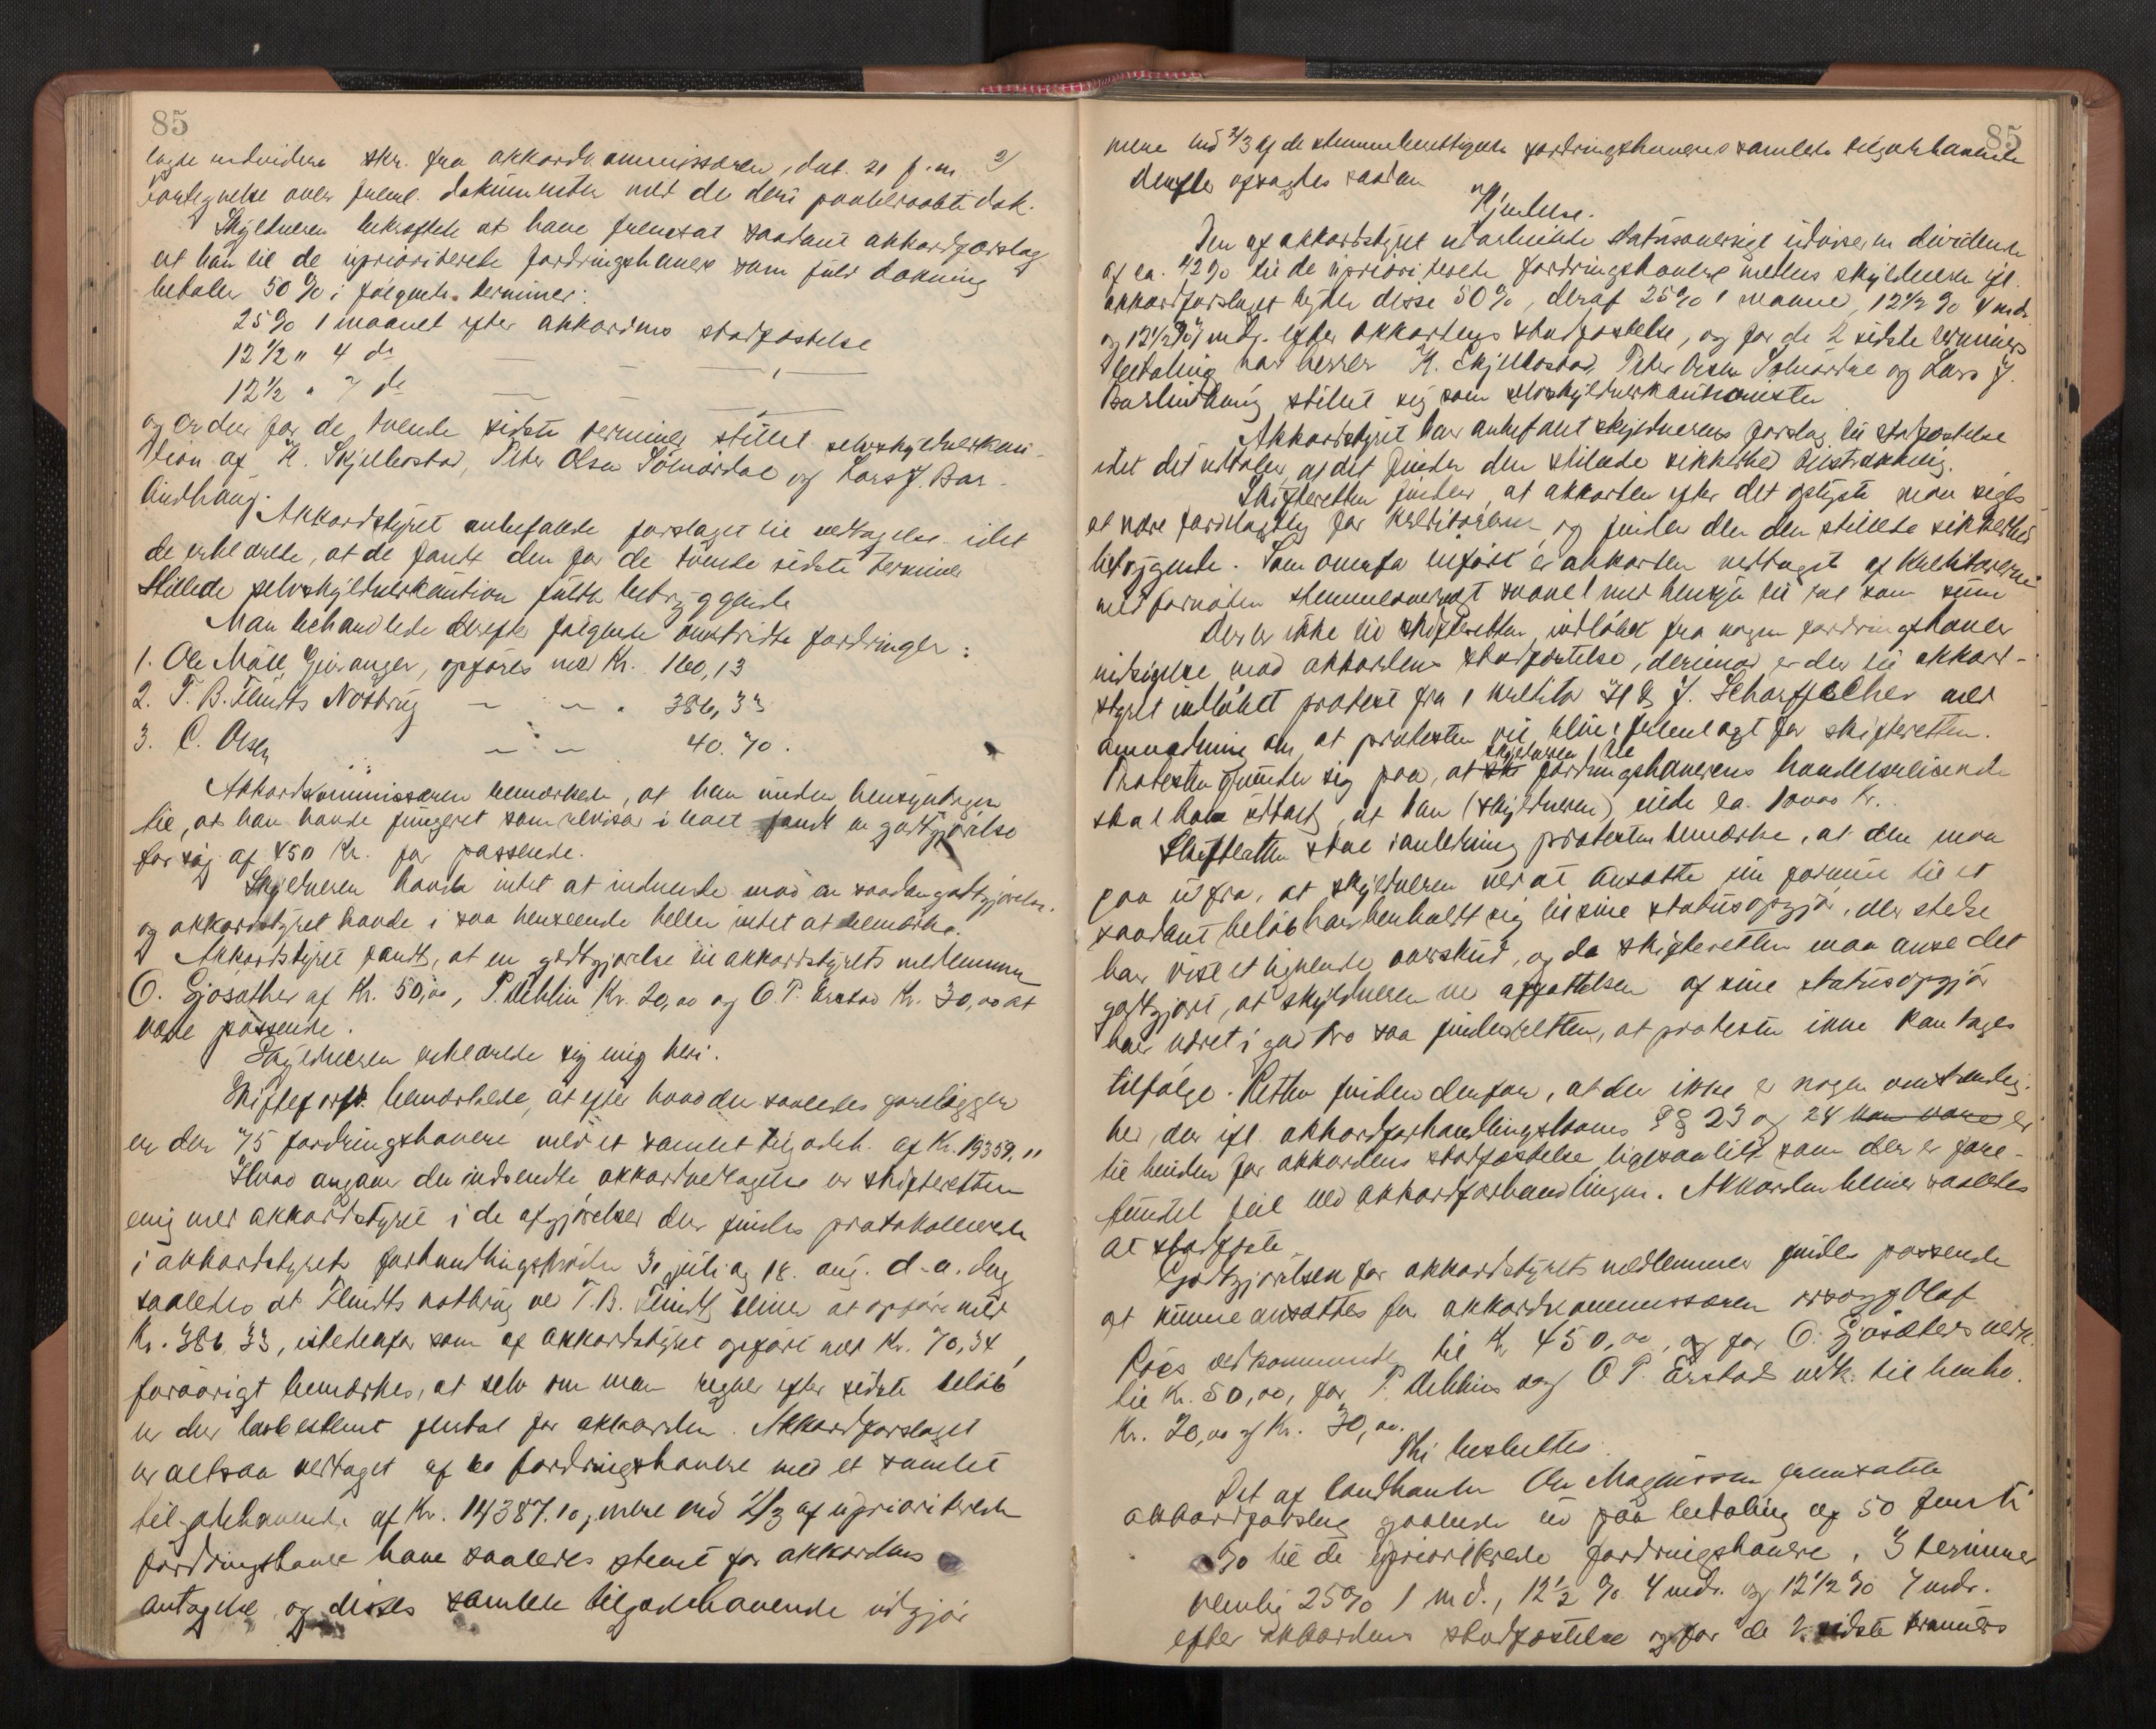 85
lagde endvidere skr. fra akkordkommissæren, dat. 20 f. m. 2)
Fortegnelse over freml. dokumenter med de deri paaberaabte dok.
Skyldneren bekræftede at have fremsat saadant akkordforslag
at han til de uprioriterede fordringshaver som fuld dækning
betaler 50 % i følgende terminer:
25 % 1 maaned efter akkordens stadfæstelse
12 ½ " 4 do — — —
12 ½ " 7 do — — —
og er der for de tvende sidste terminer stillet selvskyldnerkau-
tion af K. Skjelbostad, Peter Olsen Solnørdal og Lars J. Bar-
lindhaug.
Akkordstyret anbefalede forslaget til vedtagelse idet
de erklærede, at de fandt den for de tvende sidste terminer
stillede selvskyldnerkaution fuldt betryggende
Man behandlede derefter følgende omstridte fordringer:
1. Ole Möll Geiranger, opføres med Kr. 160,13
2. T. B. Flindts Notbrug — — " 386,33
3. C. Olsen — — 40.70.
Akkordkommissæren bemærkede, at han under hensyntagen
til, at han havde fungeret som revisor i boet fandt en godtgjørelse
for sig af 450 Kr. for passende.
Skyldneren havde intet at indvende mod en saadan godtgjørelse,
og akkordstyret havde i saa henseende heller intet at bemærke.
Akkordstyret fandt, at en godtgjørelse til akkordstyrets medlemmer
O. Gjøsæther af Kr. 50,00, P. Uehlin Kr. 20,00 og O. P. Ørstad Kr. 30,00 at
være passende.
Skyldneren erklærede sig enig heri.
Skifteforst. bemærkede, at efter hvad der saaledes foreligger
er der 75 fordringshavere med et samlet tilgodeh. af Kr. 19359, "
Hvad angaar de indsendte akkordvedtagelser er skifteretten
enig med akkordstyret i de afgjørelser der findes protokollerede
i akkordstyrets forhandlingsmøder 30 juli og 18. aug. d. a. dog
saaledes at Flindts notbrug ved T. B. Flindt bliver at opføre med
Kr. 386,33, istedenfor som af akkordstyret opført med Kr. 70,34,
forøvrigt bemærkes, at selv om man regner efter sidste beløb
er der lovbestemt flertal for akkorden. Akkordforslaget
er altsaa vedtaget af 60 fordringshavere med et samlet
tilgodehavende af Kr. 14387.10, mere end 2/3 af uprioriterede
fordringshavere have saaledes stemt for akkordens
antagelse og disses samlede tilgodehavende udgjør
85
mere end 2/3 af de stemmeberettigede fordringshaveres samlede tilgodehavende
derefter afsagdes saadan
Kjendelse.
Den af akkordstyret udarbeidede statusoversigt udviser en dividende
af ca. 42 % til de uprioriterede fordringshavere medens skyldneren ifl.
akkordforslaget byder disse 50 %, deraf 25 % 1 maaned, 12 ½ % 4 mdr.
og 12 ½ % 7 mdr. efter akkordens stadfæstelse, og for de 2 sidste terminers
betaling har herrer K. Skjelbostad, Peter Olsen Solnørdal og Lars J.
Barlindhaug stillet sig som selvskyldnerkautionister
Akkordstyret har anbefalet skyldnerens forslag til stadfæstelse
idet det udtaler, at det finder den stillede sikkerhed tilstrækkelig.
Skifteretten finder, at akkorden efter det oplyste maa siges
at være fordelagtig for kreditorerne og finder den den stillede sikkerhed
betryggende. Som ovenfor anført er akkorden vedtaget af kreditorerne
med fornøden stemmeovervægt saavel med hensyn til tal som sum
Der er ikke til skifteretten indløbet fra nogen fordringshaver
indsigelse mod akkordens stadfæstelse, derimod er der til akkord-
styret indløbet protest fra 1 kreditor H & J. Scharffscher med
anmodning om, at protesten vil blive fremlagt for skifteretten.
Protesten grunder sig paa, at skyldneren til fordringshaverens handelsreisende
skal have udtalt, at han (skyldneren) eiede ca. 10000 Kr.
Skifteretten skal i anledning protesten bemærke, at den maa
gaa ud fra, at skyldneren ved at ansætte sin formue til et
saadant beløb har henholdt sig til sine statusopgjør, der steds
har vist et lignende overskud, og da skifteretten maa anse det
godtgjort, at skyldneren ved affattelsen af sine statusopgjør
har været i god tro saa finder retten, at protesten ikke kan tages
tilfølge. Retten finder derfor, at der ikke er nogen omstændig-
hed, der ifl. akkordforhandlingslovens §§ 23 og 24 kan være er
til hinder for akkordens stadfæstelse ligesaalidt som der er fore-
kommet feil ved akkordforhandlingen. Akkorden bliver saaledes
at stadfæste.
Godtgjørelsen for akkordstyrets medlemmer findes passende
at kunne ansættes for akkordkommissæren Olaf
Roes vedkommende til Kr 450,00, og for O. Gjøsæthers vedk.
til Kr. 50,00, for P. Uehlins og O P. Ørstads vedk. til henho.
Kr. 20,00 og Kr. 30,00.
Thi besluttes:
Det af landhandler Ole Magnussen fremsatte
akkordforslag gaaende ud paa betaling af 50 femti
% til de uprioriterede fordringshavere, i 3 terminer
nemlig 25 % 1 md., 12 ½ % 4 mdr. og 12 ½ % 7 mdr.
efter akkordens stadfæstelse og for de 2 sidste terminers